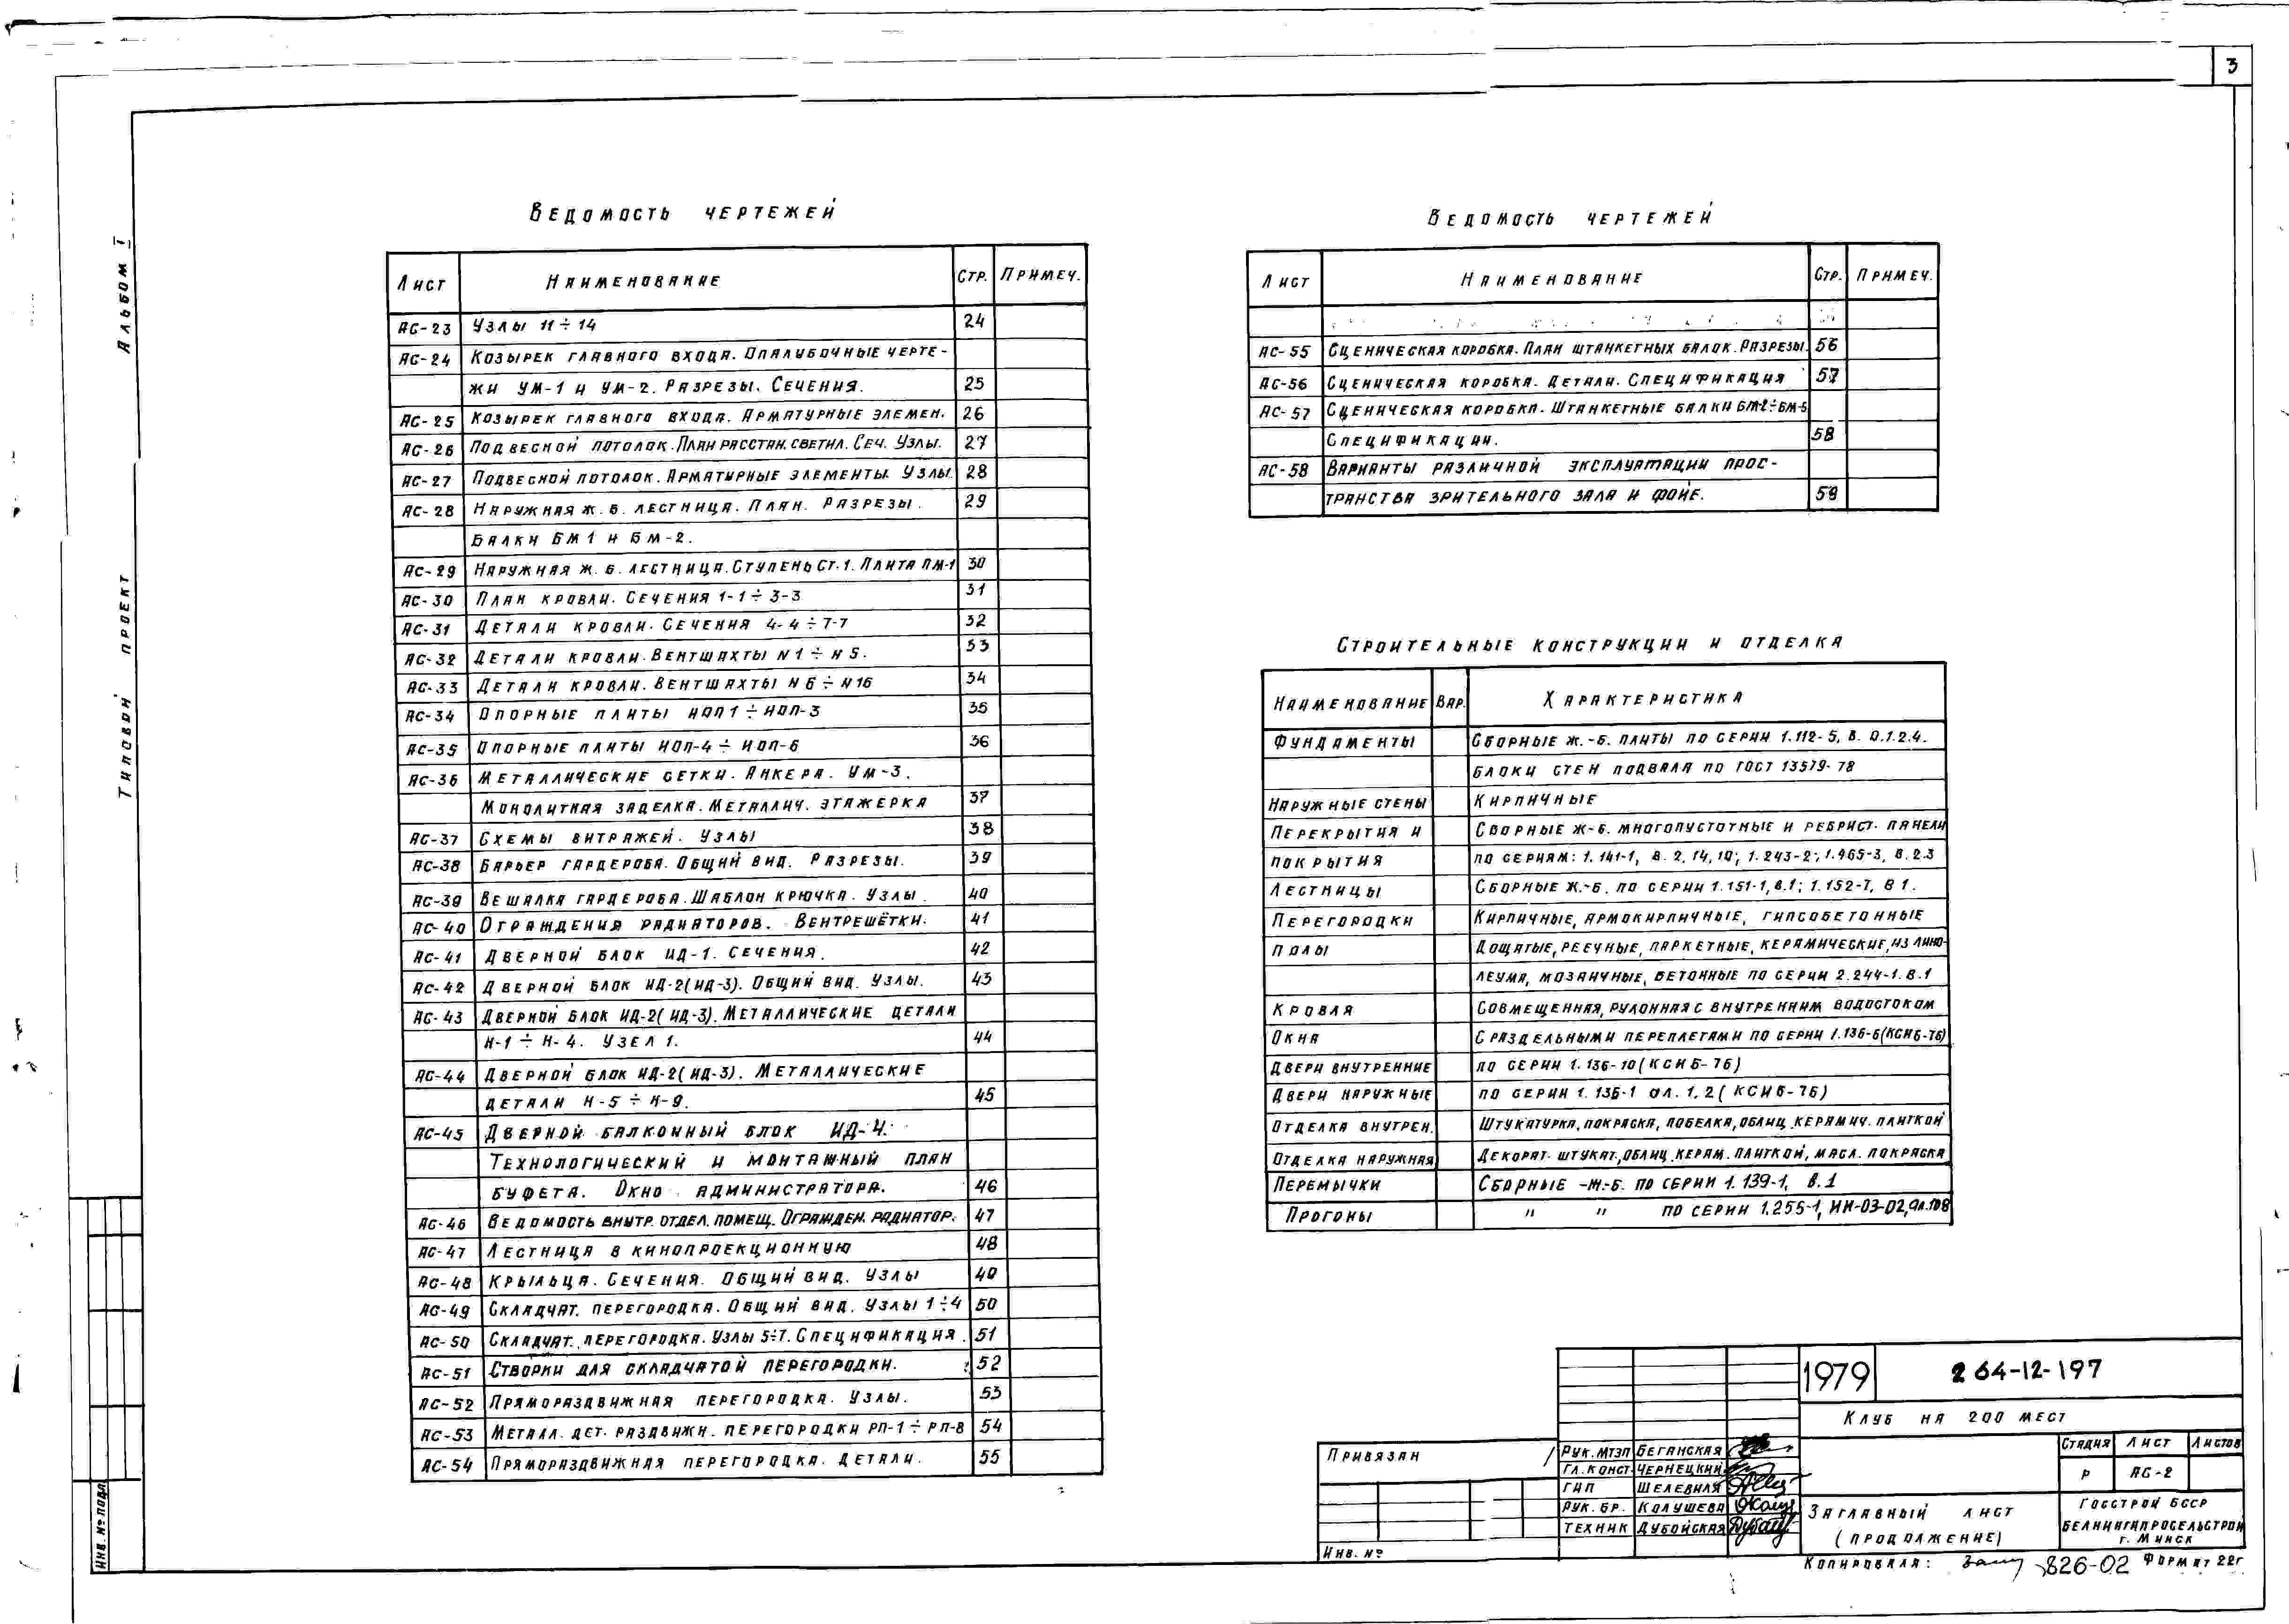 3
Альбом I
Типовой проект
Инв. № подл.
Ведомость чертежей
Лист Наименование Стр. Примеч.
АС-23 Узлы 11÷14 24
АС-24 Козырек главного входа. Опалубочные черте-
жи УМ-1 и УМ-2. Разрезы. Сечения. 25
АС-25 Козырек главного входа. Арматурные элемен. 26
АС-26 Подвесной потолок. План расстан. светил. Сеч. Узлы. 27
АС-27 Подвесной потолок. Арматурные элементы. Узлы 28
АС-28 Наружная ж.б. лестница. План. Разрезы. 29
Балки БМ1 и БМ-2.
АС-29 Наружная ж.б. лестница. Ступень Ст.1. Плита ПМ-1 30
АС-30 План кровли. Сечения 1-1÷3-3 31
АС-31 Детали кровли. Сечения 4-4÷7-7 32
АС-32 Детали кровли. Вентшахты N1÷N5. 53
АС-33 Детали кровли. Вентшахты N6÷N16 34
АС-34 Опорные плиты ИОП1÷ИОП-3 35
АС-35 Опорные плиты ИОП-4÷ИОП-6 36
АС-36 Металлические сетки. Анкера. УМ-3.
Монолитная заделка. Металлич. этажерка 37
АС-37 Схемы витражей. Узлы 38
АС-38 Барьер гардероба. Общий вид. Разрезы. 39
АС-39 Вешалка гардероба. Шаблон крючка. Узлы. 40
АС-40 Ограждения радиаторов. Вентрешётки. 41
АС-41 Дверной блок ИД-1. Сечения. 42
АС-42 Дверной блок ИД-2(ИД-3). Общий вид. Узлы. 43
АС-43 Дверной блок ИД-2(ИД-3). Металлические детали
Н-1÷Н-4. Узел 1. 44
АС-44 Дверной блок ИД-2(ИД-3). Металлические
детали Н-5÷Н-9. 45
АС-45 Дверной балконный блок ИД-4.
Технологический и монтажный план
буфета. Окно администратора. 46
АС-46 Ведомость внутр. отдел. помещ. Огражден. радиатор. 47
АС-47 Лестница в кинопроекционную 48
АС-48 Крыльца. Сечения. Общий вид. Узлы 49
АС-49 Складчат. перегородка. Общий вид. Узлы 1÷4 50
АС-50 Складчат. перегородка. Узлы 5÷7. Спецификация. 51
АС-51 Створки для складчатой перегородки. 52
АС-52 Прямораздвижная перегородка. Узлы. 53
АС-53 Металл. дет. раздвижн. перегородки РП-1÷РП-8 54
АС-54 Прямораздвижная перегородка. Детали. 55
Ведомость чертежей
Лист Наименование Стр. Примеч.
АС-55 Сценическая коробка. План штанкетных балок. Разрезы. 56
АС-56 Сценическая коробка. Детали. Спецификация 57
АС-57 Сценическая коробка. Штанкетные балки БМ-2÷БМ-5
Спецификации. 58
АС-58 Варианты различной эксплуатации прос-
транства зрительного зала и фойе. 59
Строительные конструкции и отделка
Наименование Вар. Характеристика
Фундаменты Сборные ж.-б. плиты по серии 1.112-5, в. 0.1.2.4.
блоки стен подвала по ГОСТ 13579-78
Наружные стены Кирпичные
Перекрытия и Сборные ж-б. многопустотные и ребрист. панели
покрытия по сериям: 1.141-1, в. 2, 14, 10; 1.243-2; 1.465-3, в. 2.3
Лестницы Сборные ж.-б. по серии 1.151-1, в.1; 1.152-7, в 1.
Перегородки Кирпичные, армокирпичные, гипсобетонные
Полы Дощатые, реечные, паркетные, керамические, из лино-
леума, мозаичные, бетонные по серии 2.244-1. в.1
Кровля Совмещенная, рулонная с внутренним водостоком
Окна С раздельными переплетами по серии 1.136-6(КСИБ-76)
Двери внутренние по серии 1.136-10(КСИБ-76)
Двери наружные по серии 1.136-1 ал. 1, 2 (КСИБ-76)
Отделка внутрен. Штукатурка, покраска, побелка, облиц. керамич. плиткой
Отделка наружная Декорат. штукат., облиц. керам. плиткой, масл. покраска
Перемычки Сборные ж-б. по серии 1.139-1, в.1
Прогоны " " по серии 1.255-1, ИИ-03-02, ал. 108
1979 264-12-197
Клуб на 200 мест
Стадия Лист Листов
Р АС-2
Привязан
Инв. №
Рук. МТЭП Беганская
Гл. конст. Чернецкий
ГИП Шелевная
Рук. бр. Колушева
Техник Дубойская
Заглавный лист
(продолжение)
Госстрой БССР
Белниигипросельстрой
г. Минск
Копировала: 826-02 Формат 22г